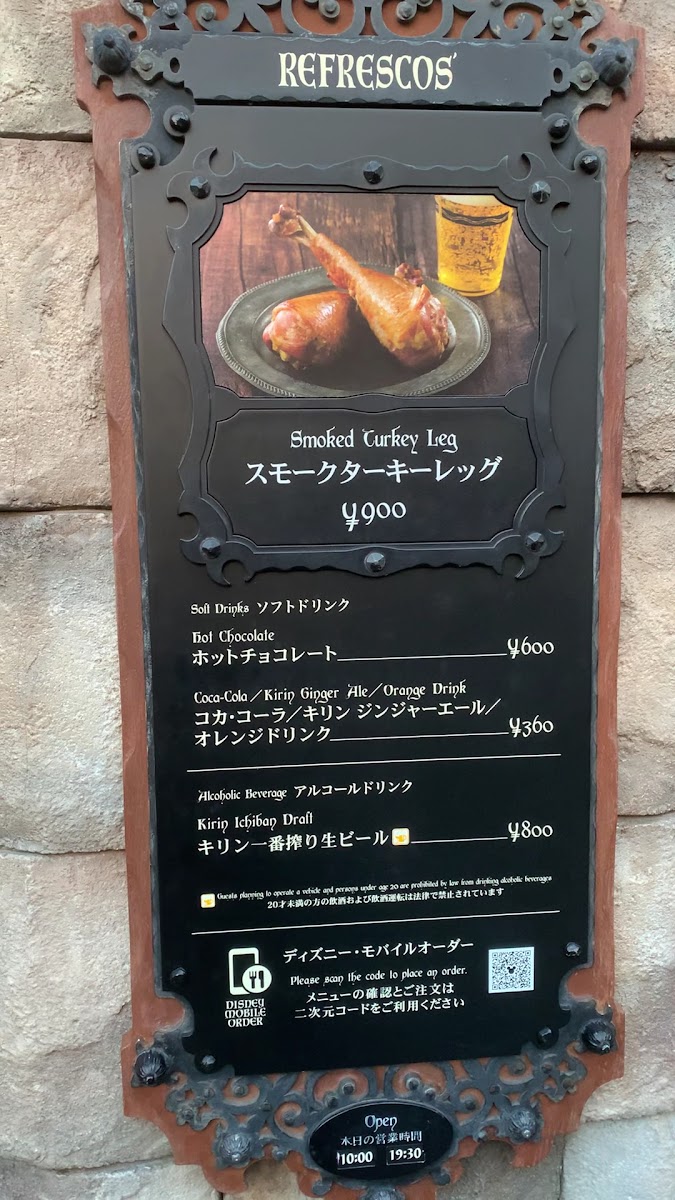 REFRESCOS
Smoked Turkey Leg
スモークターキーレッグ
¥900
Soft Drinks ソフトドリンク
Hot Chocolate
ホットチョコレート ¥600
Coca-Cola／Kirin Ginger Ale／Orange Drink
コカ・コーラ／キリン ジンジャーエール／
オレンジドリンク ¥360
Alcoholic Beverage アルコールドリンク
Kirin Ichiban Draft
キリン一番搾り生ビール ¥800
Guests planning to operate a vehicle and persons under age 20 are prohibited by law from drinking alcoholic beverages
20才未満の方の飲酒および飲酒運転は法律で禁止されています
ディズニー・モバイルオーダー
Please scan the code to place an order.
メニューの確認とご注文は
二次元コードをご利用ください
DISNEY
MOBILE
ORDER
Open
本日の営業時間
10:00 19:30